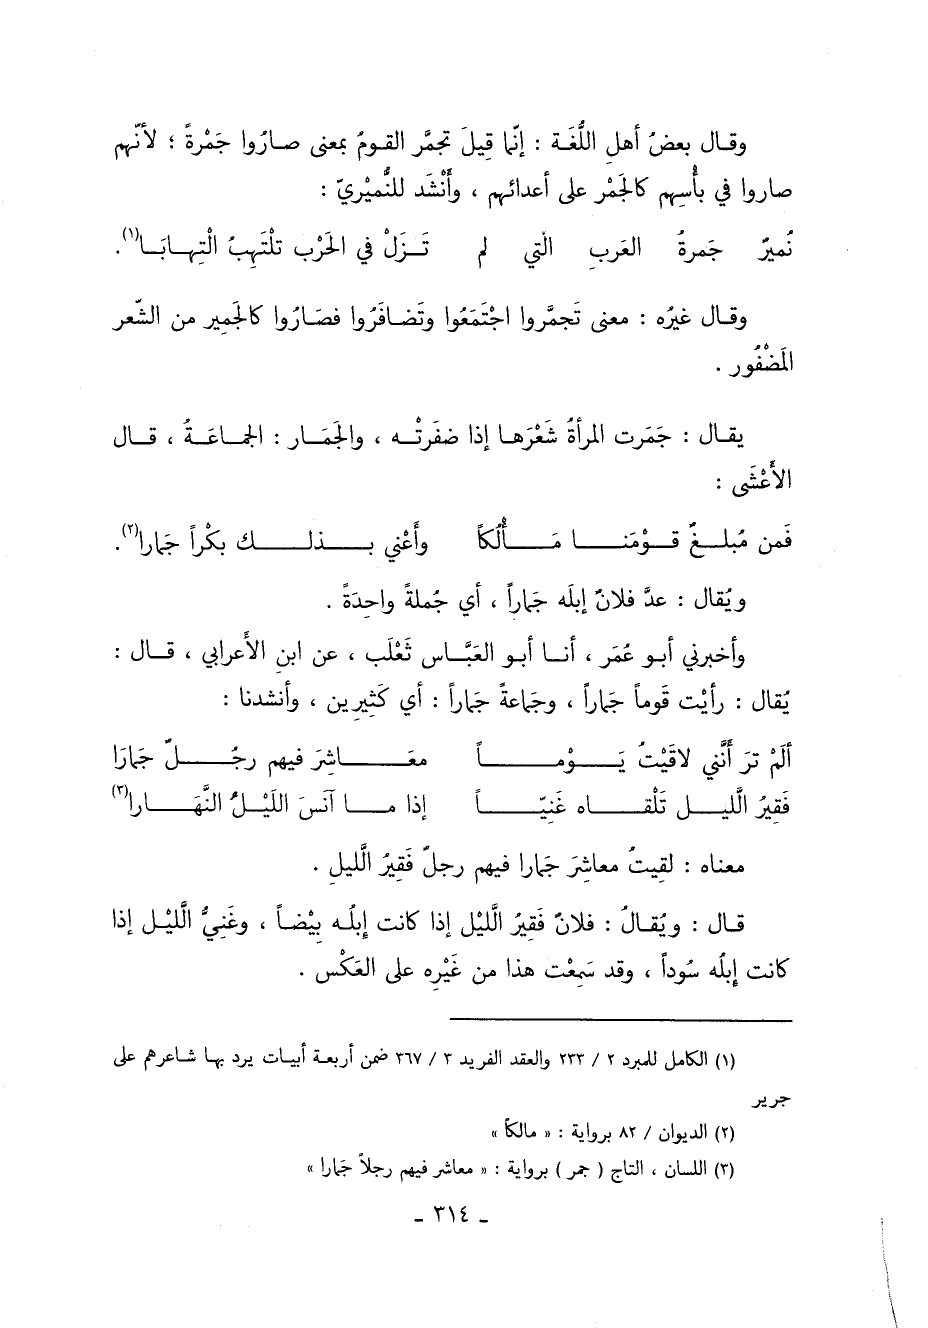 وقال بعضُ أهلِ اللُّغَة : إنّما قِيلَ تجمَّر القومُ بمعنى صارُوا جَمْرةً ؛ لأنّهم
صاروا في بأْسِهم كالجَمْر على أعدائهم ، وأَنْشَد للنُّميْريّ :
نُميرٌ جَمرةُ العَربِ الّتي لم تَزَلْ في الحَرْب تلْتَهِبُ الْتِهابَا(١).
وقال غيرُه : معنى تَجمَّروا اجْتَمَعُوا وتَضافَرُوا فصَارُوا كالجَمِير من الشّعر
المَضْفُور .
يقال : جَمَرت المرأةُ شَعْرَها إذا ضفَرتْه ، والجَمَار : الجماعَةُ ، قال
الأَعْشَى :
فَمن مُبلغٌ قوْمَنا مَأْلُكاً وأَعْني بذلك بكْراً جَمارا(٢).
ويُقال : عدَّ فلانٌ إبلَه جَماراً ، أي جُملةً واحِدَةً .
وأخبرني أبو عُمَر ، أنا أبو العَبَّاس ثَعْلَب ، عن ابنِ الأَعرابي ، قال :
يُقال : رأيْت قَوماً جَماراً ، وجَماعةً جَماراً : أي كَثِيرين ، وأنشدنا :
ألَمْ ترَ أنَّني لاقَيْتُ يَوْماً معَاشِرَ فيهم رجُلٌ جَمارَا
فَقِيرُ الَّليل تَلْقاه غَنِيّاً إذا ما آنَسَ اللَّيْلُ النَّهَارا(٣)
معناه : لقِيتُ معاشِرَ جَمارا فيهم رجلٌ فَقِيرُ الَّليل .
قال : ويُقالُ : فلانٌ فَقِيرُ الَّليْل إذا كانت إِبلُه بِيْضاً ، وغَنِيُّ الَّليْل إذا
كانت إِبلُه سُوداً ، وقد سَمِعْت هذا من غَيْرِه على العَكْس .
(١) الكامل للمبرد ٢ / ٢٣٣ والعقد الفريد ٣ / ٣٦٧ ضمن أربعة أبيات يرد بها شاعرهم على
جرير
(٢) الديوان / ٨٢ برواية : « مالكاً »
(٣) اللسان ، التاج ( جمر ) برواية : « معاشر فيهم رجلاً جَمارا »
ـ ٣١٤ ـ